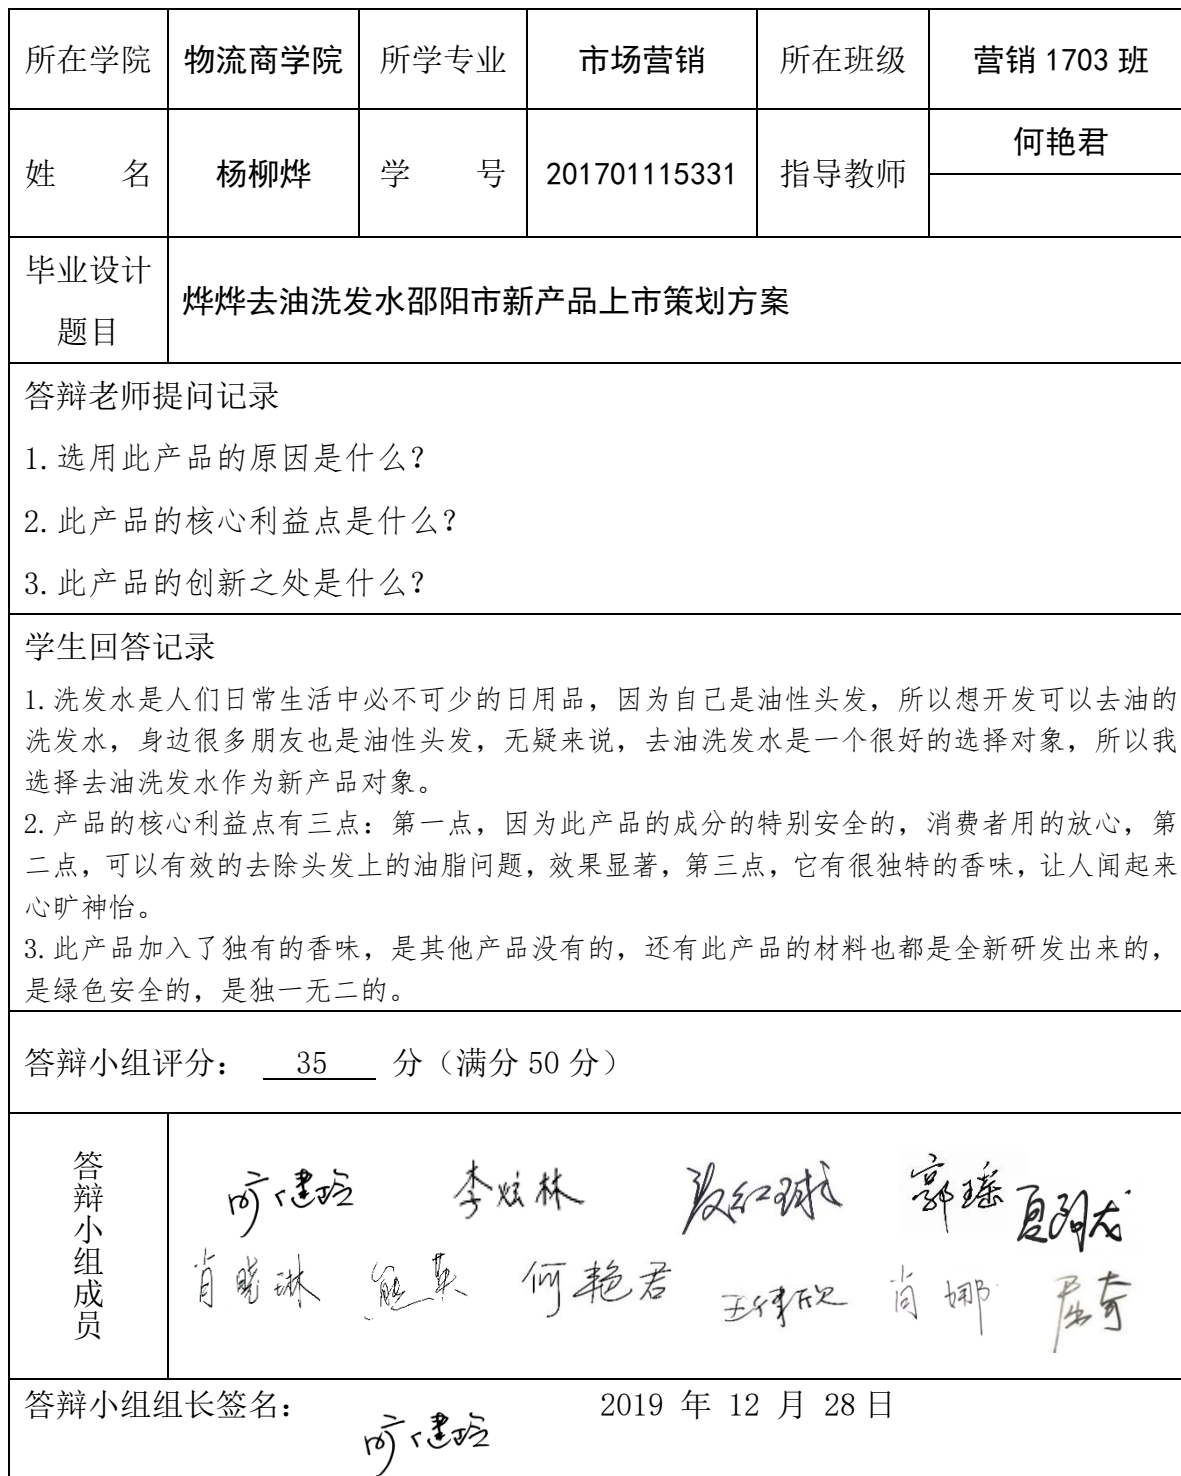 所在学院 物流商学院 所学专业 市场营销 所在班级 营销 1703 班
姓 名 杨柳烨 学 号 201701115331 指导教师 何艳君
毕业设计题目 烨烨去油洗发水邵阳市新产品上市策划方案
答辩老师提问记录
1.选用此产品的原因是什么？
2.此产品的核心利益点是什么？
3.此产品的创新之处是什么？
学生回答记录
1.洗发水是人们日常生活中必不可少的日用品，因为自己是油性头发，所以想开发可以去油的
洗发水，身边很多朋友也是油性头发，无疑来说，去油洗发水是一个很好的选择对象，所以我
选择去油洗发水作为新产品对象。
2.产品的核心利益点有三点：第一点，因为此产品的成分的特别安全的，消费者用的放心，第
二点，可以有效的去除头发上的油脂问题，效果显著，第三点，它有很独特的香味，让人闻起来
心旷神怡。
3.此产品加入了独有的香味，是其他产品没有的，还有此产品的材料也都是全新研发出来的，
是绿色安全的，是独一无二的。
答辩小组评分： 35 分（满分 50 分）
答辩小组成员
李炫林 郭瑶
肖晓琳 熊英 何艳君 肖娜 屈奇
答辩小组组长签名： 2019 年 12 月 28 日